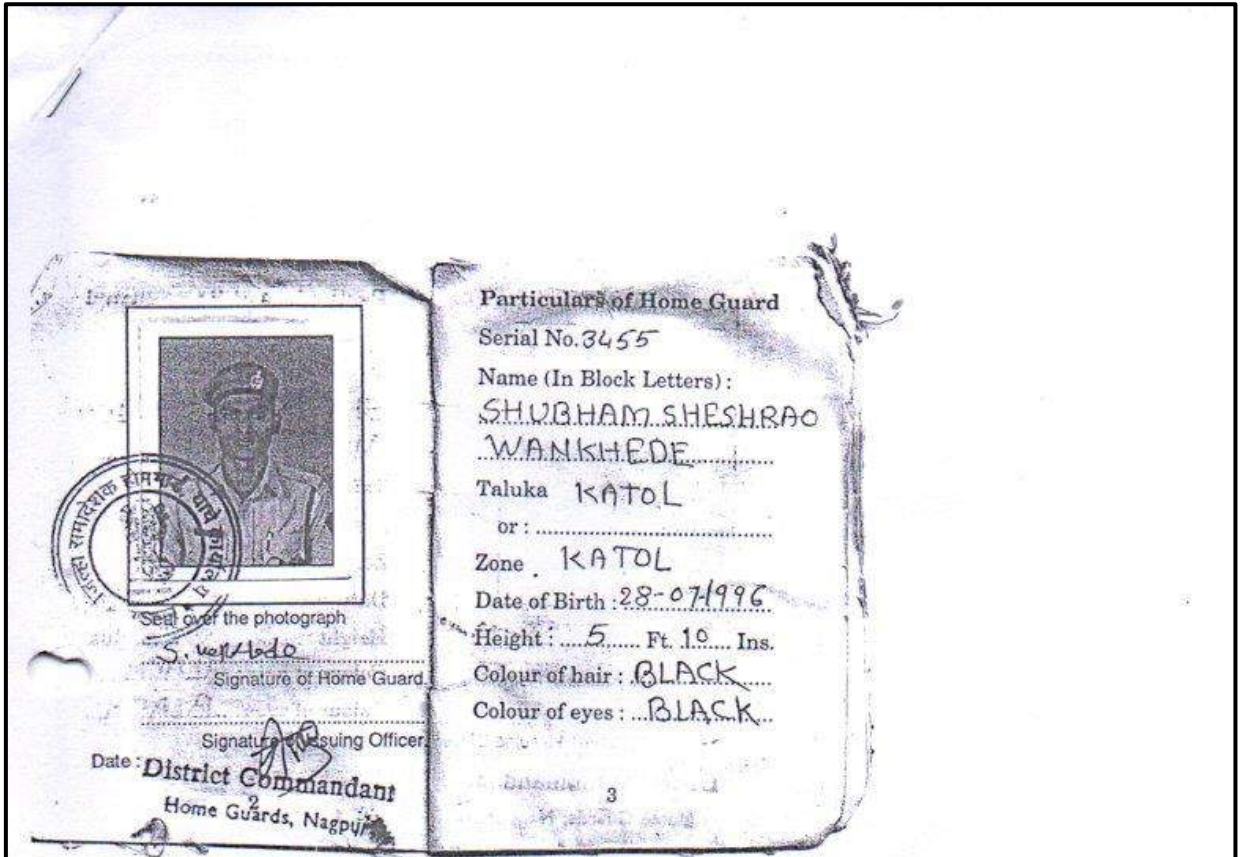 जिल्हा समादेशक होमगार्ड यांचे कार्यालय
Seal over the photograph
Signature of Home Guard.
Signature of Issuing Officer.
Date :
District Commandant
2
Home Guards, Nagpur
Particulars of Home Guard
Serial No. 3455
Name (In Block Letters) :
SHUBHAM SHESHRAO
WANKHEDE
Taluka KATOL
or :
Zone KATOL
Date of Birth : 28-07-1996
Height : 5 Ft. 10 Ins.
Colour of hair : BLACK
Colour of eyes : BLACK
3